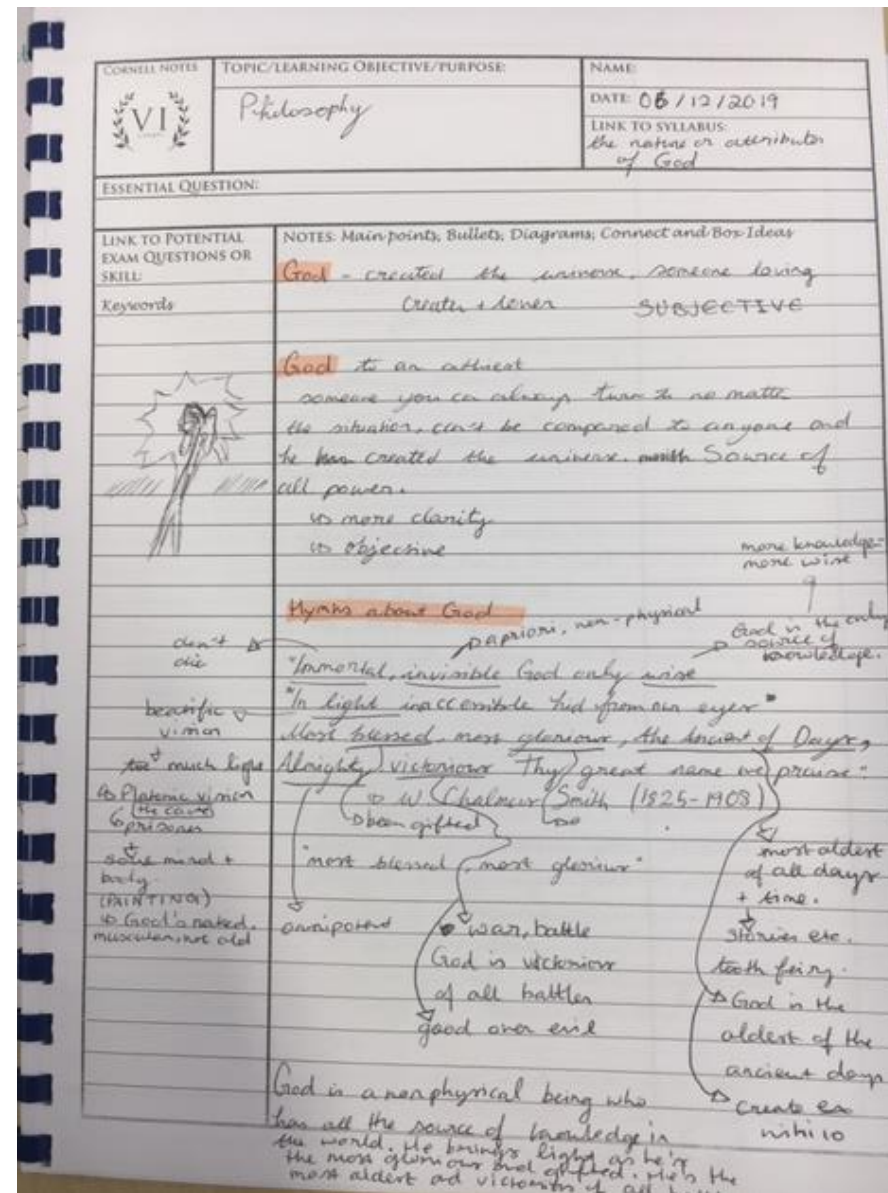 CORNELL NOTES
VI
TOPIC/LEARNING OBJECTIVE/PURPOSE:
Philosophy
NAME:
DATE: 06/12/2019
LINK TO SYLLABUS:
the nature or attributes
of God
ESSENTIAL QUESTION:
LINK TO POTENTIAL
EXAM QUESTIONS OR
SKILL:
Keywords
NOTES: Main points, Bullets, Diagrams, Connect and Box Ideas
God - created the universe, someone loving
Creater + lover SUBJECTIVE
God to an atheist
someone you can always turn to no matter
the situation, can't be compared to anyone and
he has created the universe. Source of
all power.
more clarity
objective
more knowledge =
more wise
Hymns about God
apriori, non-physical
God is the only
source of
knowledge.
don't
die
"Immortal, invisible God only wise
"In light inaccessible hid from our eyes"
beatific
vision
Most blessed, most glorious, the Ancient of Days,
too much light
Almighty, victorious Thy great name we praise"
Platonic vision
the cave
prisoner
W. Chalmers Smith (1825-1908)
been gifted
"most blessed, most glorious"
mind +
body
(PAINTING)
God's naked,
muscular, not old
omnipotent
war, battle
God is victorious
of all battles
good over evil
most oldest
of all days
+ time.
stories etc.
tooth feiry.
God is the
oldest of the
ancient days
create ex
nihilo
God is a nonphysical being who
has all the source of knowledge in
the world. He brings light as he's
the most glorious and gifted. He's the
most oldest ad victorious of all